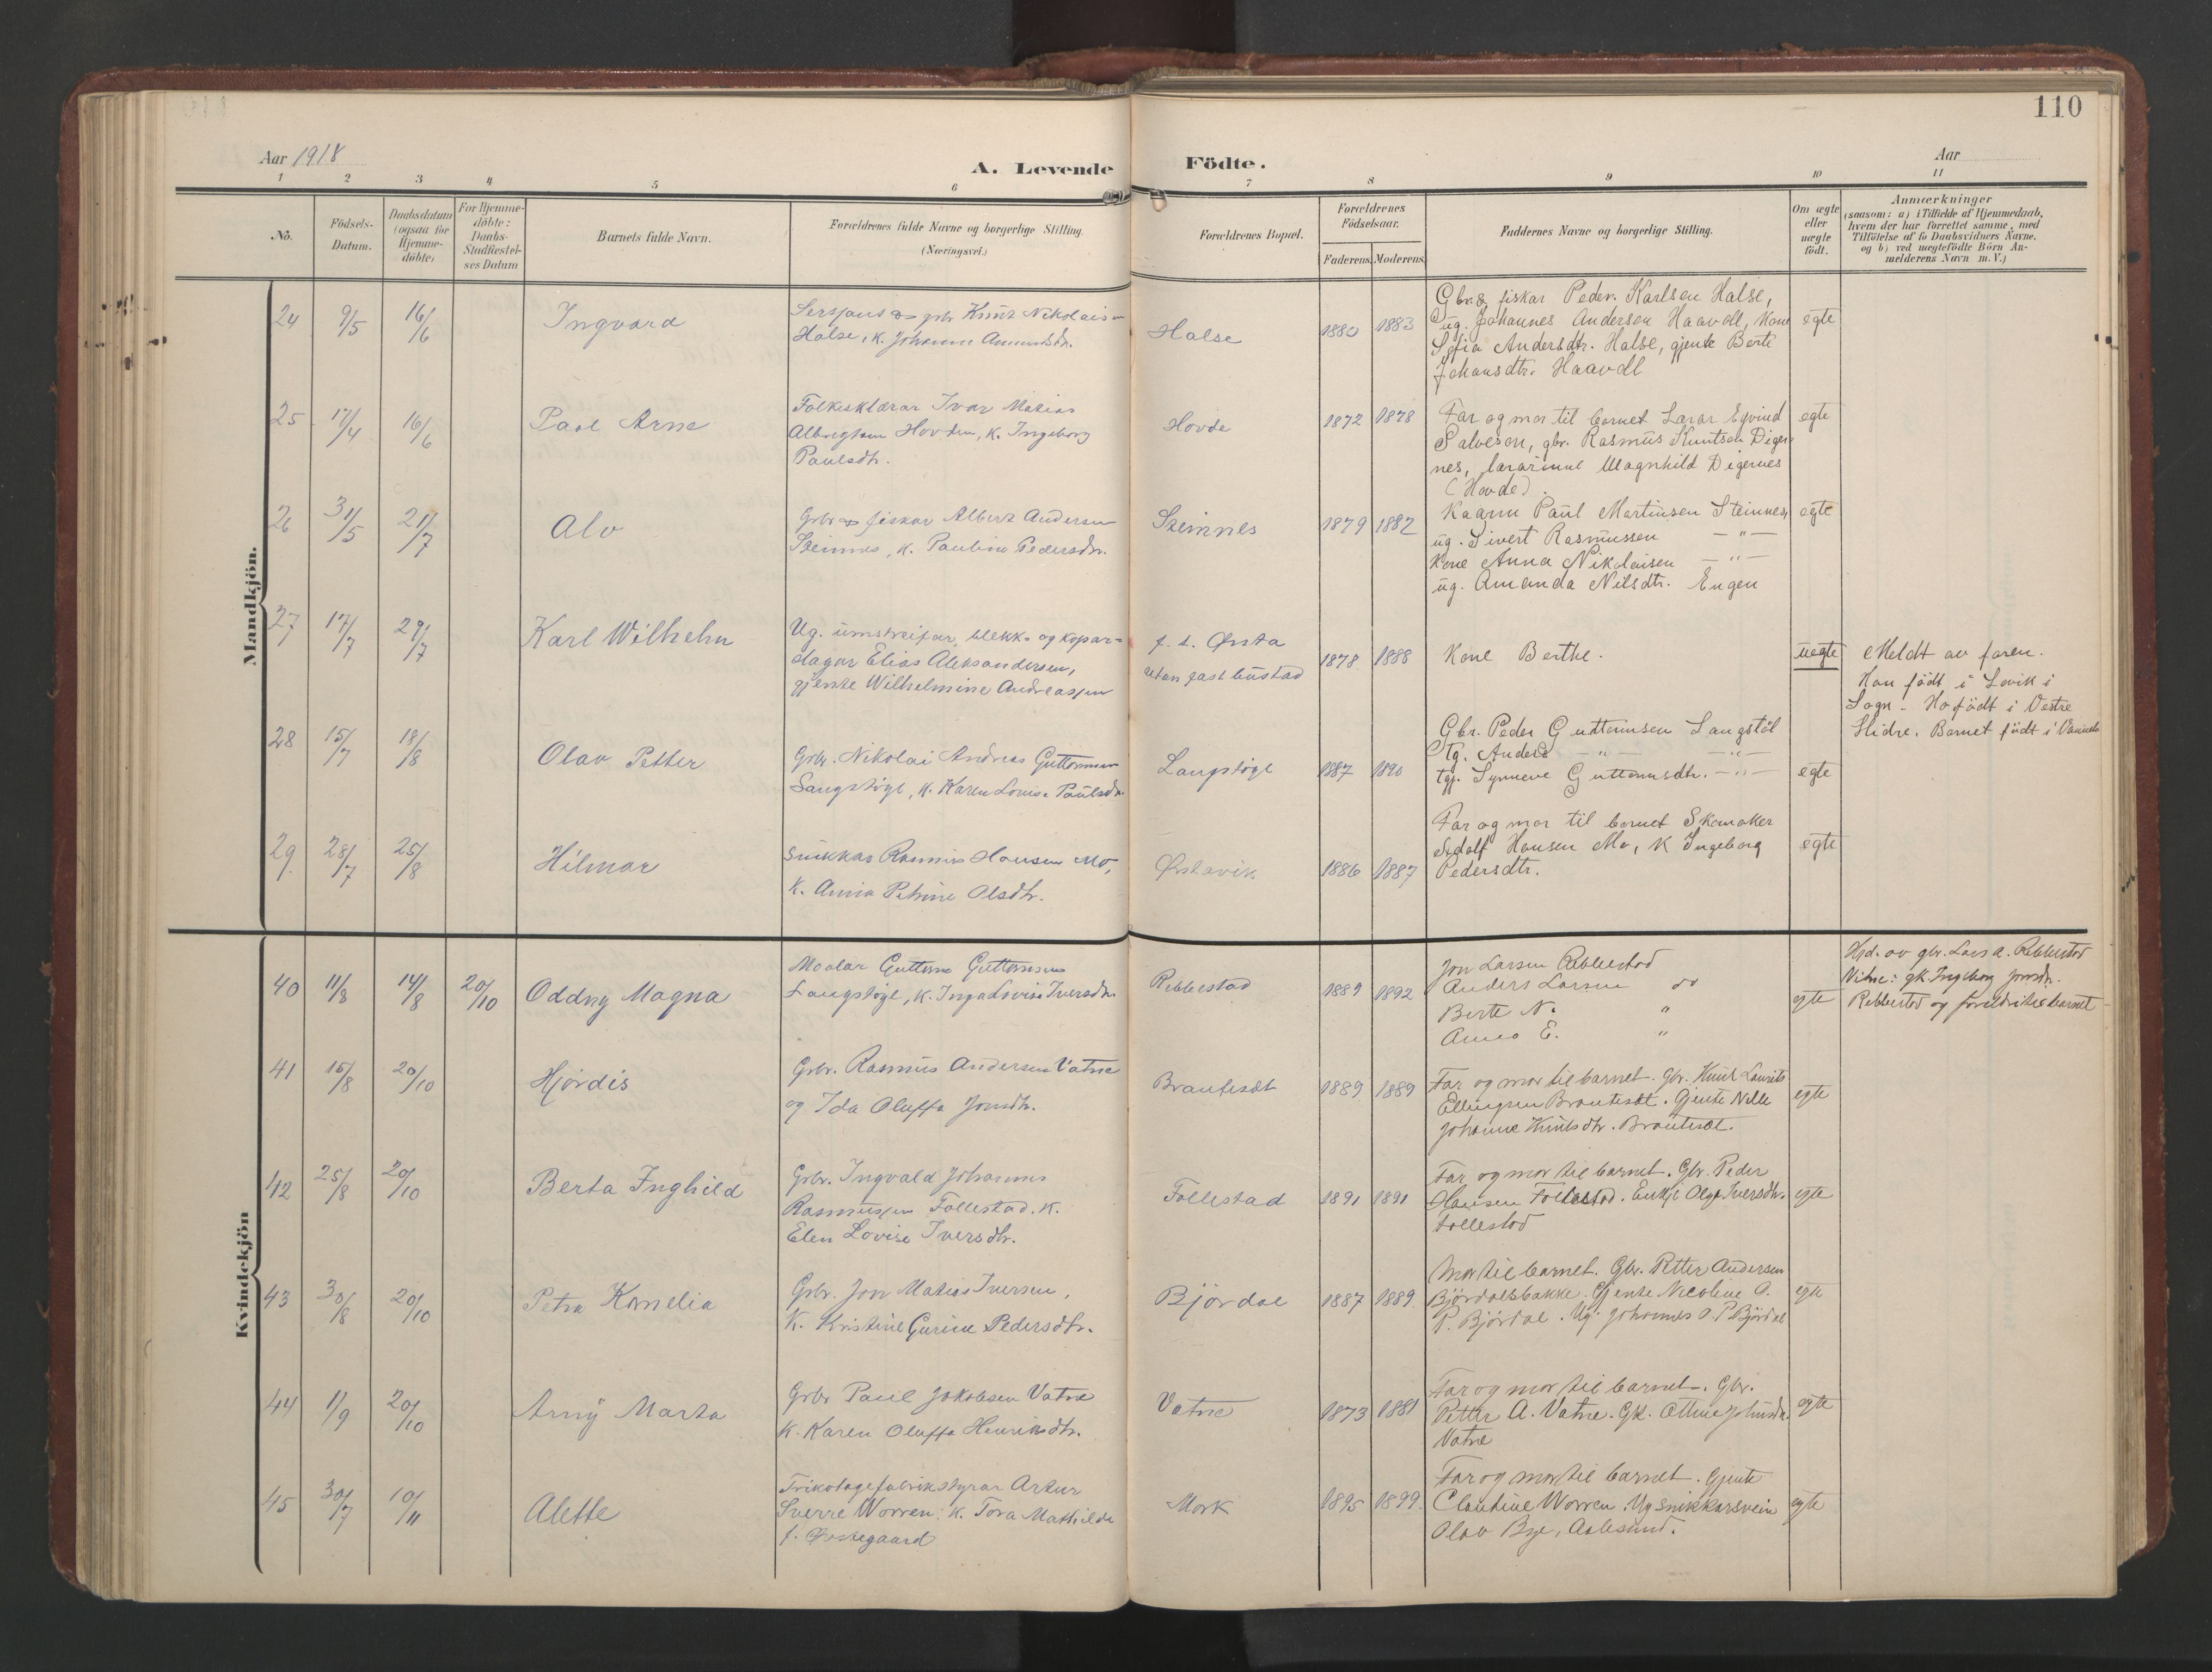 110
Aar 1918
A. Levende Födte.
Aar
1 2 3 4 5 6 7 8 9 10 11
No.
Födsels-
Datum.
Daabsdatum
(ogsaa for
Hjemme-
döbte)
For Hjemme-
döbte:
Daabs-
Stadfæstel-
ses Datum
Barnets fulde Navn.
Forældrenes fulde Navne og borgerlige Stilling.
(Næringsvei.)
Forældrenes Bopæl.
Forældrenes
Födselsaar.
Faderens. Moderens.
Faddernes Navne og borgerlige Stilling.
Om ægte
eller
uægte
födt.
Anmærkninger
(saasom: a) i Tilfælde af Hjemmedaab,
hvem der har forrettet samme, med
Tilföielse af to Daabsvidners Navne,
og b) ved uægtefödte Börn An-
melderens Navn m. V.)
Mandkjön.
24 9/5 16/6 Ingvard
Sersjant & gbr Knut Nikolaisen
Halse, k. Johanne Amundsdtr.
Halse 1880 1883
Gbr. & fiskar Peder Karlsen Halse,
ug. Johannes Andersen Haavoll, kone
Sofia Andersdtr. Halse, gjente Berte
Johansdtr. Haavoll
egte
25 17/4 16/6 Paul Arne
Folkesklærar Ivar Matias
Albregtsen Hovden, k. Ingeborg
Paulsdtr.
Hovde 1872 1878
Far og mor til barnet Lærar Eyvind
Salveson, gbr. Rasmus Knutsen Diger-
nes, lærarinne Magnhild Digernes
(Hovde).
egte
26 31/5 21/7 Alv
Gbr & fiskar Albert Andersen
Steinnes, k. Pauline Pedersdtr.
Steinnes 1879 1882
Kaarm Paul Martinsen Steinnes,
ug. Sivert Rasmussen — " —
Kone Anna Nikolaisen — " —
ug. Amanda Nilsdtr. Engen
egte
27 17/7 29/7 Karl Wilhelm
Ug. umstreifar, blekk- og kopar-
slagar Elias Aleksandersen,
gjente Wilhelmine Andreassen
f. t. Ørsta
utan fast bustad
1878 1888
Kone Berthe.
uegte
Meldt av faren.
Han födt i Lavik i
Sogn - Ho födt i Vestre
Slidre. Barnet födt i
28 15/7 18/8 Olav Petter
Gbr. Nikolai Andreas Guttormsen
Langstöyl, k. Karen Lovise Paulsdtr.
Langstöyl 1887 1890
Gbr. Peder Guttormsen Langstöl
Ug. Anders — " — — " —
tgj. Synneve Guttormsdtr. — " —
egte
29. 28/7 25/8 Hilmar
Snikkar Rasmus Hansen Mo,
k. Anna Petrine Olsdtr.
Ørstavik 1886 1887
Far og mor til barnet Skomaker
Adolf Hansen Mo, k Ingeborg
Pedersdtr.
egte
Kvindekjön
40 11/8 14/8 20/10 Oddny Magna
Maalar Guttorm Guttormsen
Langstöyl, k. Inga Lovise Iversdtr.
Rebbestad 1889 1892
Jon Larsen Rebbestad
Anders Larsen do
Berte N. "
Anna E. "
egte
Hjd. av gbr. Lars A. Rebbestad
Vitne: gk. Ingeborg Jonsdtr.
Rebbestad og foreldri til barnet
41 15/8 20/10 Hjördis
Gbr. Rasmus Andersen Vatne
og Ida Oluffa Jonsdtr.
Brautesæt 1889 1889
Far og mor til barnet. Gbr. Knut Laurits
Ellingsen Brautesæt. Gjente Nille
Johanne Knutsdtr. Brautesæt.
egte
42 25/8 20/10 Berta Inghild
Gbr. Ingvald Johannes
Rasmussen Follestad. K.
Elen Lovise Iversdtr.
Follestad 1891 1891
Far og mor til barnet. Gbr. Peder
Hansen Follestad. Enkje Olga Iversdtr.
Follestad
egte
43 30/8 20/10 Petra Kornelia
Gbr. Jon Matias Iversen,
K. Kristine Gurine Pedersdtr.
Björdal 1887 1889
Mor til barnet. Gbr. Petter Andersen
Björdalsbakke. Gjente Nicoline O.
P. Björdal. Ug. Johannes O. P Björdal
egte
44 11/9 20/10 Arnÿ Marta
Gbr Paul Jakobsen Vatne
K. Karen Oluffa Henriksdtr.
Vatne 1873 1881
Far og mor til barnet. Gbr.
Petter A. Vatne. Gk.
Vatne
egte
45 30/7 10/11 Alette
Trikotagefabrikstyrar Artur
Sverre Worren, k. Tora Mathilde
f. Østegaard
Mork 1895 1899.
Far og mor til barnet. Gjente
Claudine Worren. Ug snikkarsvein
Olav Bye, Aalesund.
egte